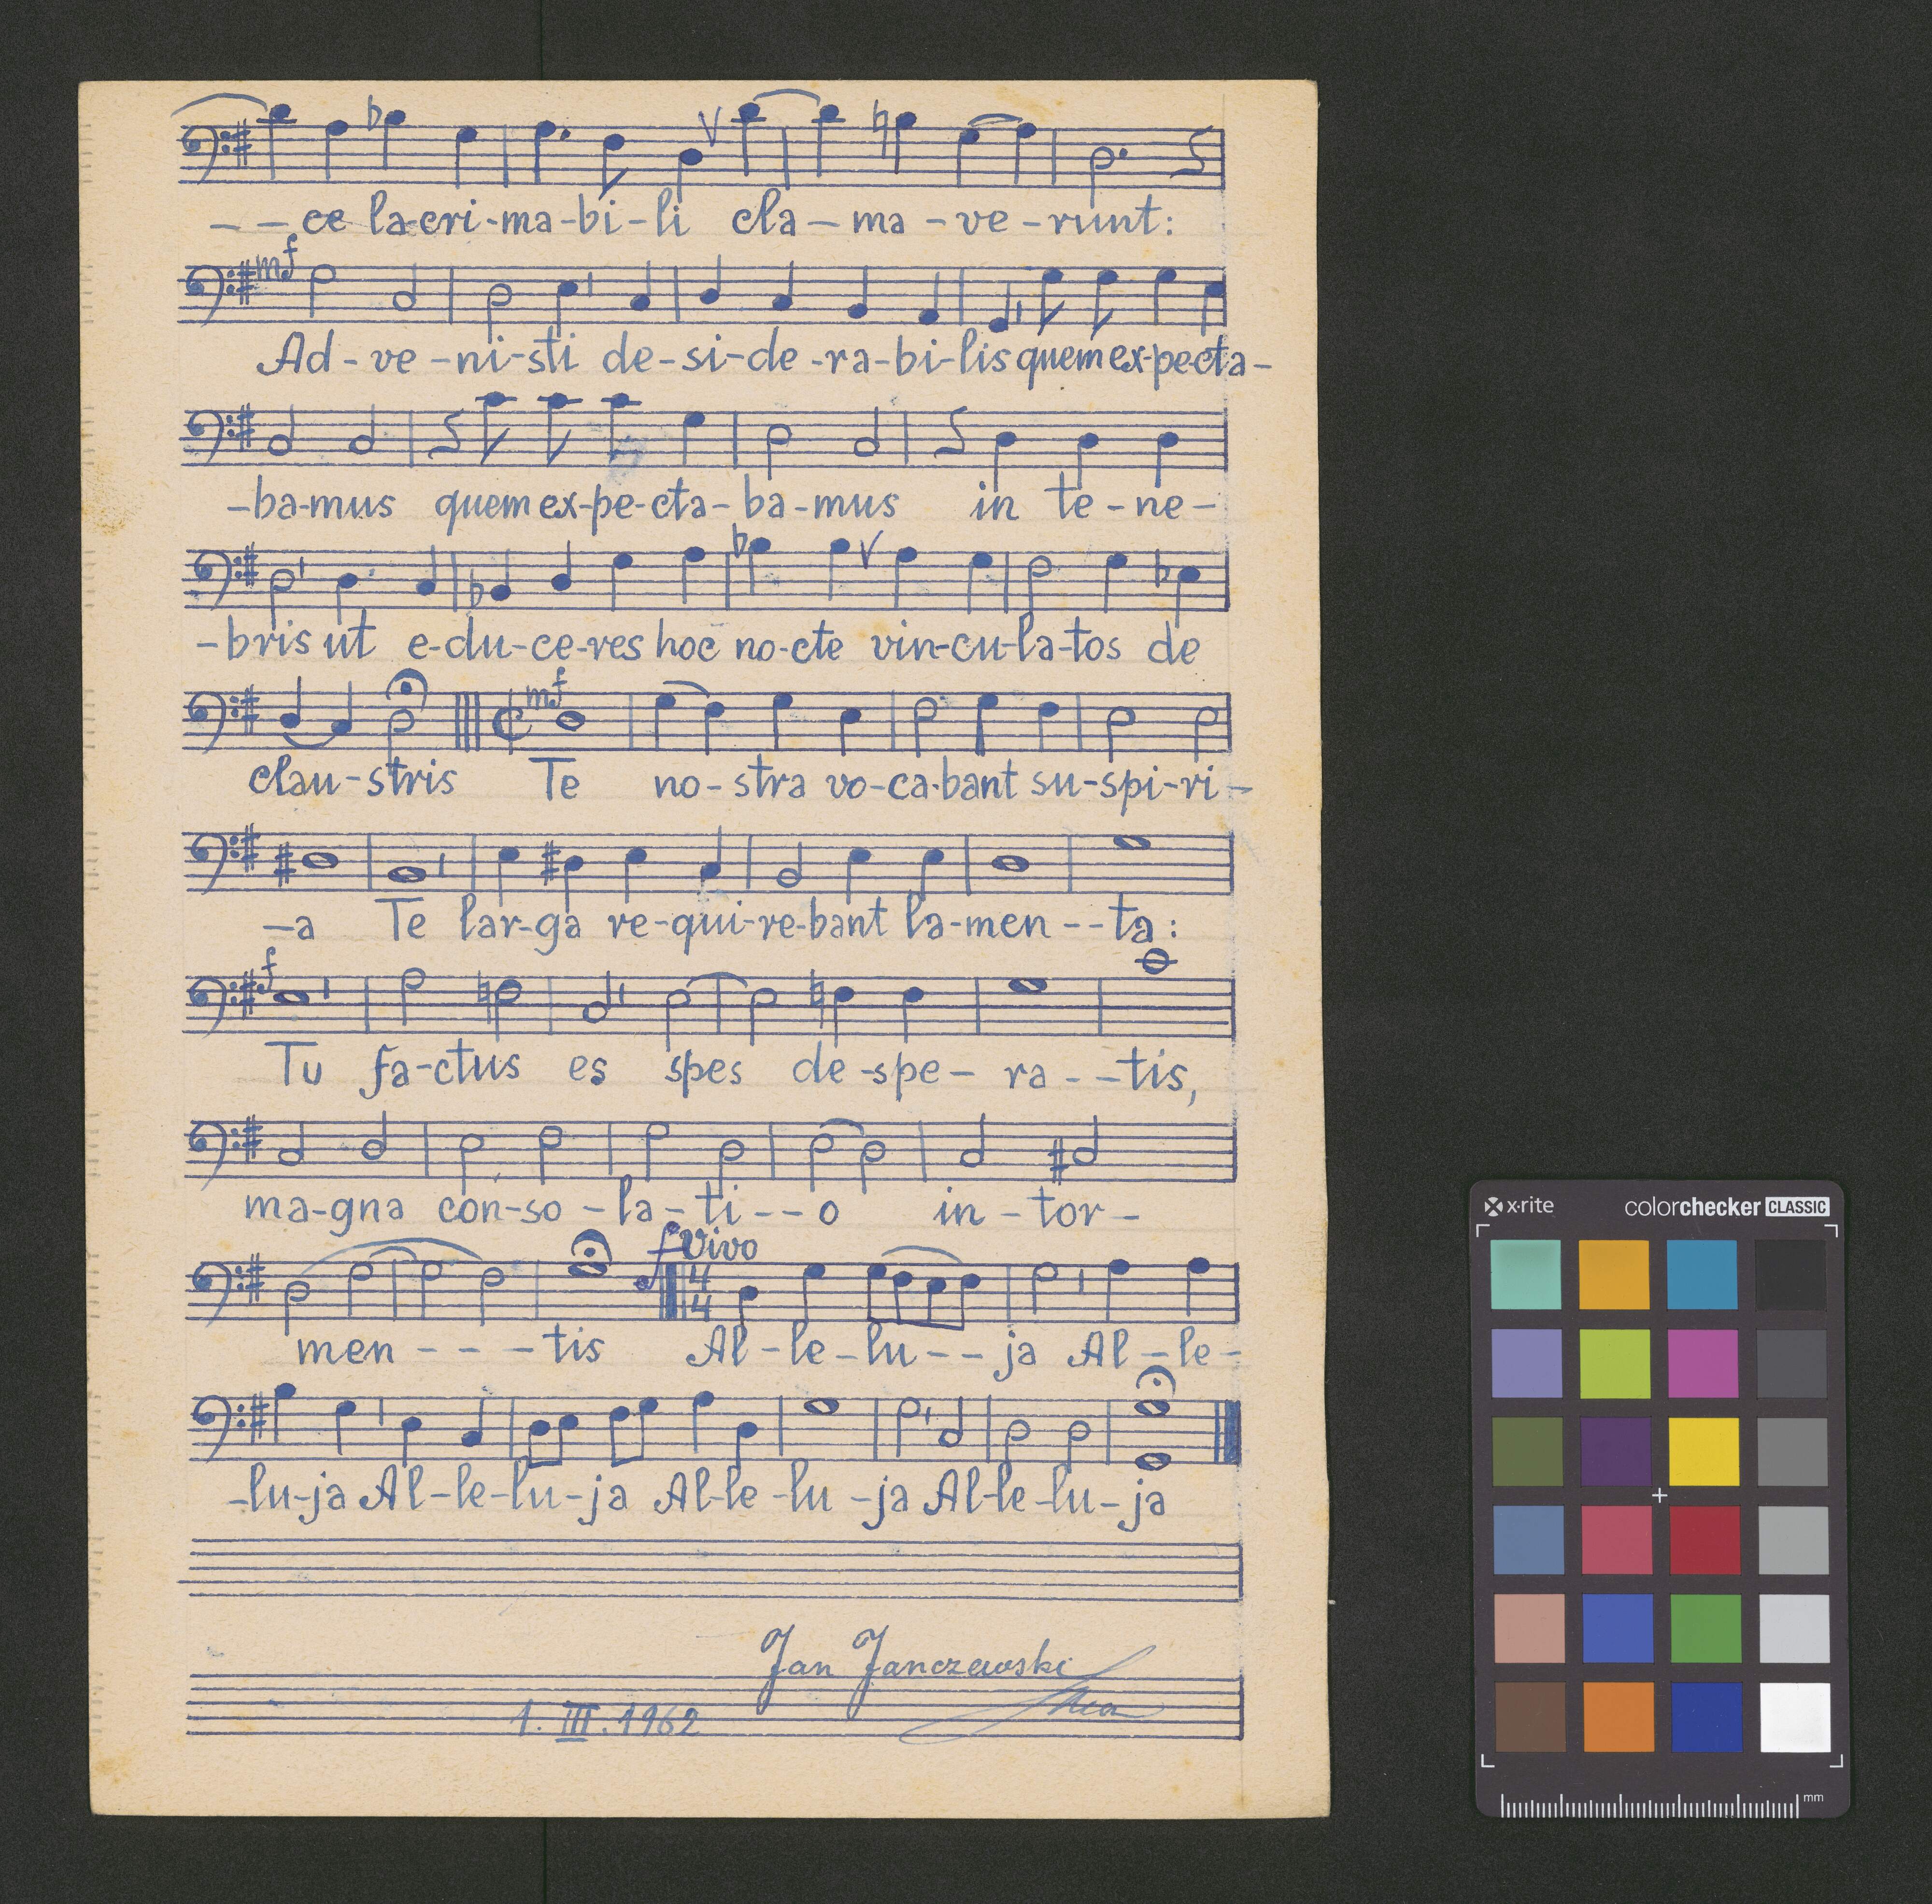 - - ce la-cri-ma-bi-li cla-ma-ve-runt:
mf
Ad-ve-ni-sti de-si-de-ra-bi-lis quem ex-pe-cta-
-ba-mus quem ex-pe-cta-ba-mus in te-ne-
-bris ut e-du-ce-res hoc no-cte vin-cu-la-tos de
mf
clau-stris Te no-stra vo-ca-bant su-spi-ri-
-a Te lar-ga re-qui-re-bant la-men--ta:
f
Tu fa-ctus es spes de-spe-ra--tis,
ma-gna con-so-la-ti--o in-tor-
f Vivo
4
4
men - - - tis Al-le-lu--ja Al-le-
-lu-ja Al-le-lu-ja Al-le-lu-ja Al-le-lu-ja
Jan Janczewski
1. III. 1962
x·rite colorchecker CLASSIC
mm